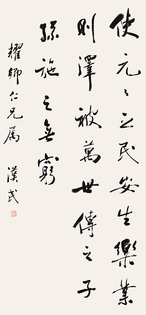 使元〻之民安生樂業
則澤被萬世傳之子
孫施之無窮
耀卿仁兄屬 漢